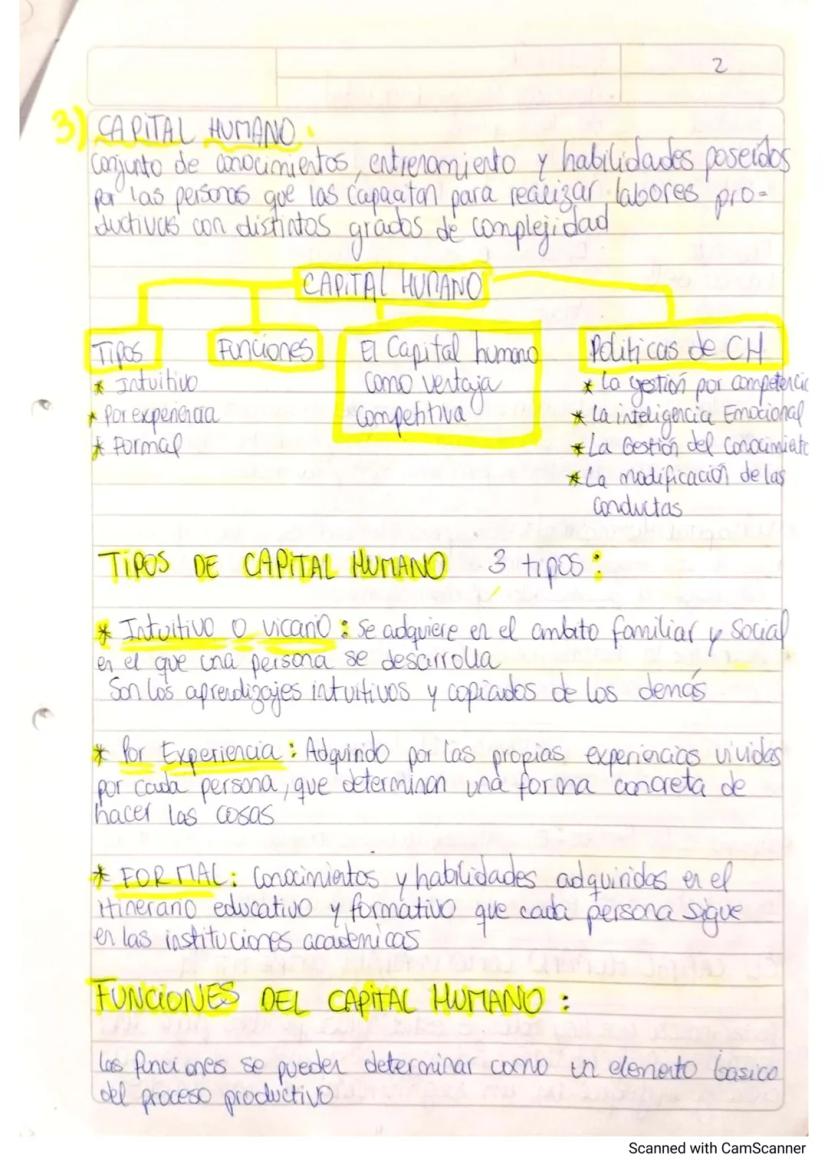 2
3) CAPITAL HUMANO:
conjunto de conocimientos, entrenamiento y habilidades poseidos
por las personas que las capacitan para realizar labores pro-
ductivas con distintos grados de complejidad
CAPITAL HUMANO
Tipos
* Intuitivo
* Por experiencia
* Formal
Funciones
El Capital humano
como ventaja
competitiva
Politicas de CH
* La gestión por competencic
* La inteligencia Emocional
* La Gestión del conocimiento
* La modificación de las
conductas
TIPOS DE CAPITAL HUMANO 3 tipos:
* Intuitivo o vicario: se adquiere en el ambito familiar y social
en el que una persona se desarrolla
Son los aprendizajes intuitivos y copiados de los demás
* Por Experiencia: Adquirido por las propias experiencias vividas
por cada persona, que determinan una forma concreta de
hacer las cosas
* FORMAL: Conocimientos y habilidades adquiridas en el
itinerario educativo y formativo que cada persona sigue
en las instituciones academicas
FUNCIONES DEL CAPITAL HUMANO:
las funciones se pueden determinar como un elemento basico
del proceso productivo
Scanned with CamScanner